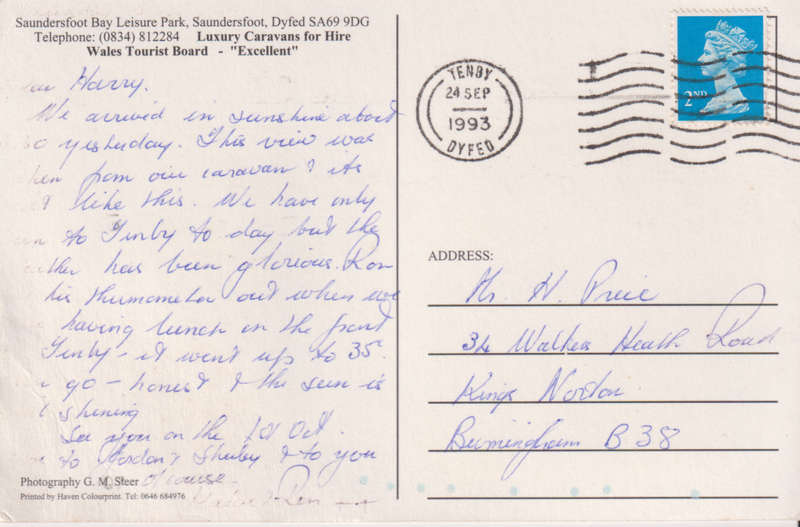 Saundersfoot Bay Leisure Park, Saundersfoot, Dyfed SA69 9DG
Telephone: (0834) 812284 Luxury Caravans for Hire
Wales Tourist Board - "Excellent"
Harry.
We arrived in sunshine about
yesterday. This view was
from our caravan & its
like this. We have only
to Tenby to day but the
has been glorious. Ron
his thermometer out when we
having lunch in the front
Tenby - it went up to 35
go - honest & the sun is
shining
See you on the 1st Oct.
to Gordon & Shirley & to you
of course
Ron
Photography G. M. Sleer
Printed by Haven Colourprint. Tel: 0646 684976
TENBY
24 SEP
1993
DYFED
2ND
ADDRESS:
Mr. H. Price
34 Walkers Heath Road
Kings Norton
Birmingham B38